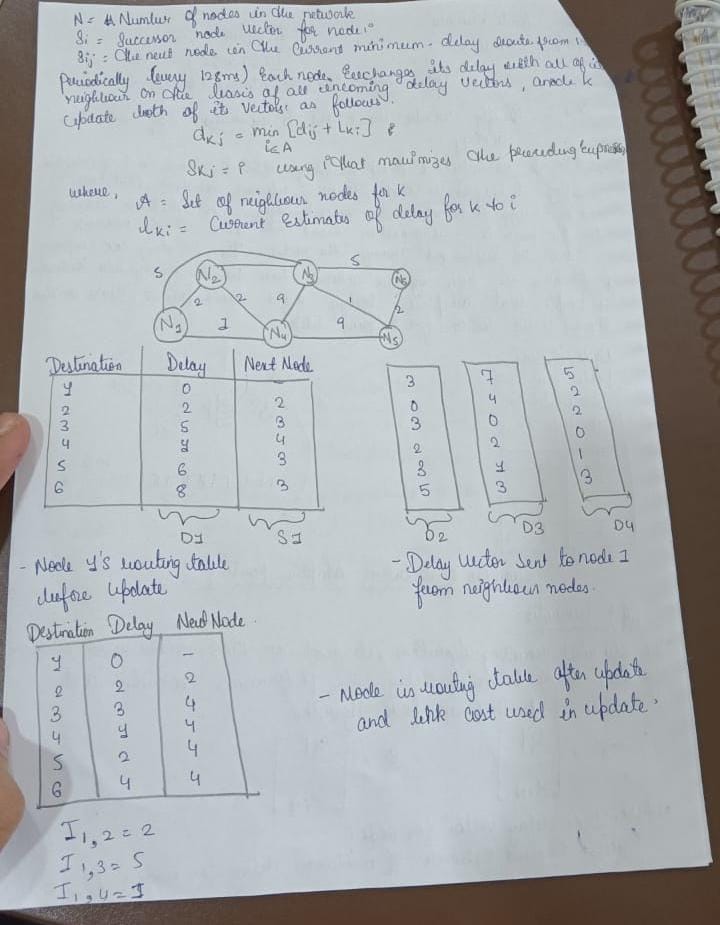 N = # Number of nodes in the network
Si = Successor node vector for node i
Sij = the next node in the current minimum - delay route from i
Periodically (every 128ms) Each node Exchanges its delay with all of its
neighbour on the basis of all incoming delay vectors, a node k
Update both of its vectors as follows.
dkj = min [dij + Lki] &
i∈A
Skj = i using i that maximizes the preceding
where,
A = Set of neighbour nodes for k
lki = Current Estimates of delay for k to i
5
N2
N3
5
N6
2
2
9
1
2
N1
1
N4
9
N5
Destination Delay Next Node
1 0 -
2 2 2
3 5 3
4 1 4
5 6 3
6 8 3
D1 S1
3 7 5
0 4 2
3 0 2
2 2 0
3 1 1
5 3 3
D2 D3 D4
- Node 1's routing table
before update
- Delay vector sent to node 1
from neighbour nodes.
Destination Delay Next Node
1 0 -
2 2 2
3 3 4
4 1 4
5 2 4
6 4 4
- Node is routing table after update
and link cost used in update.
I1,2 = 2
I1,3 = 5
I1,4 = 1